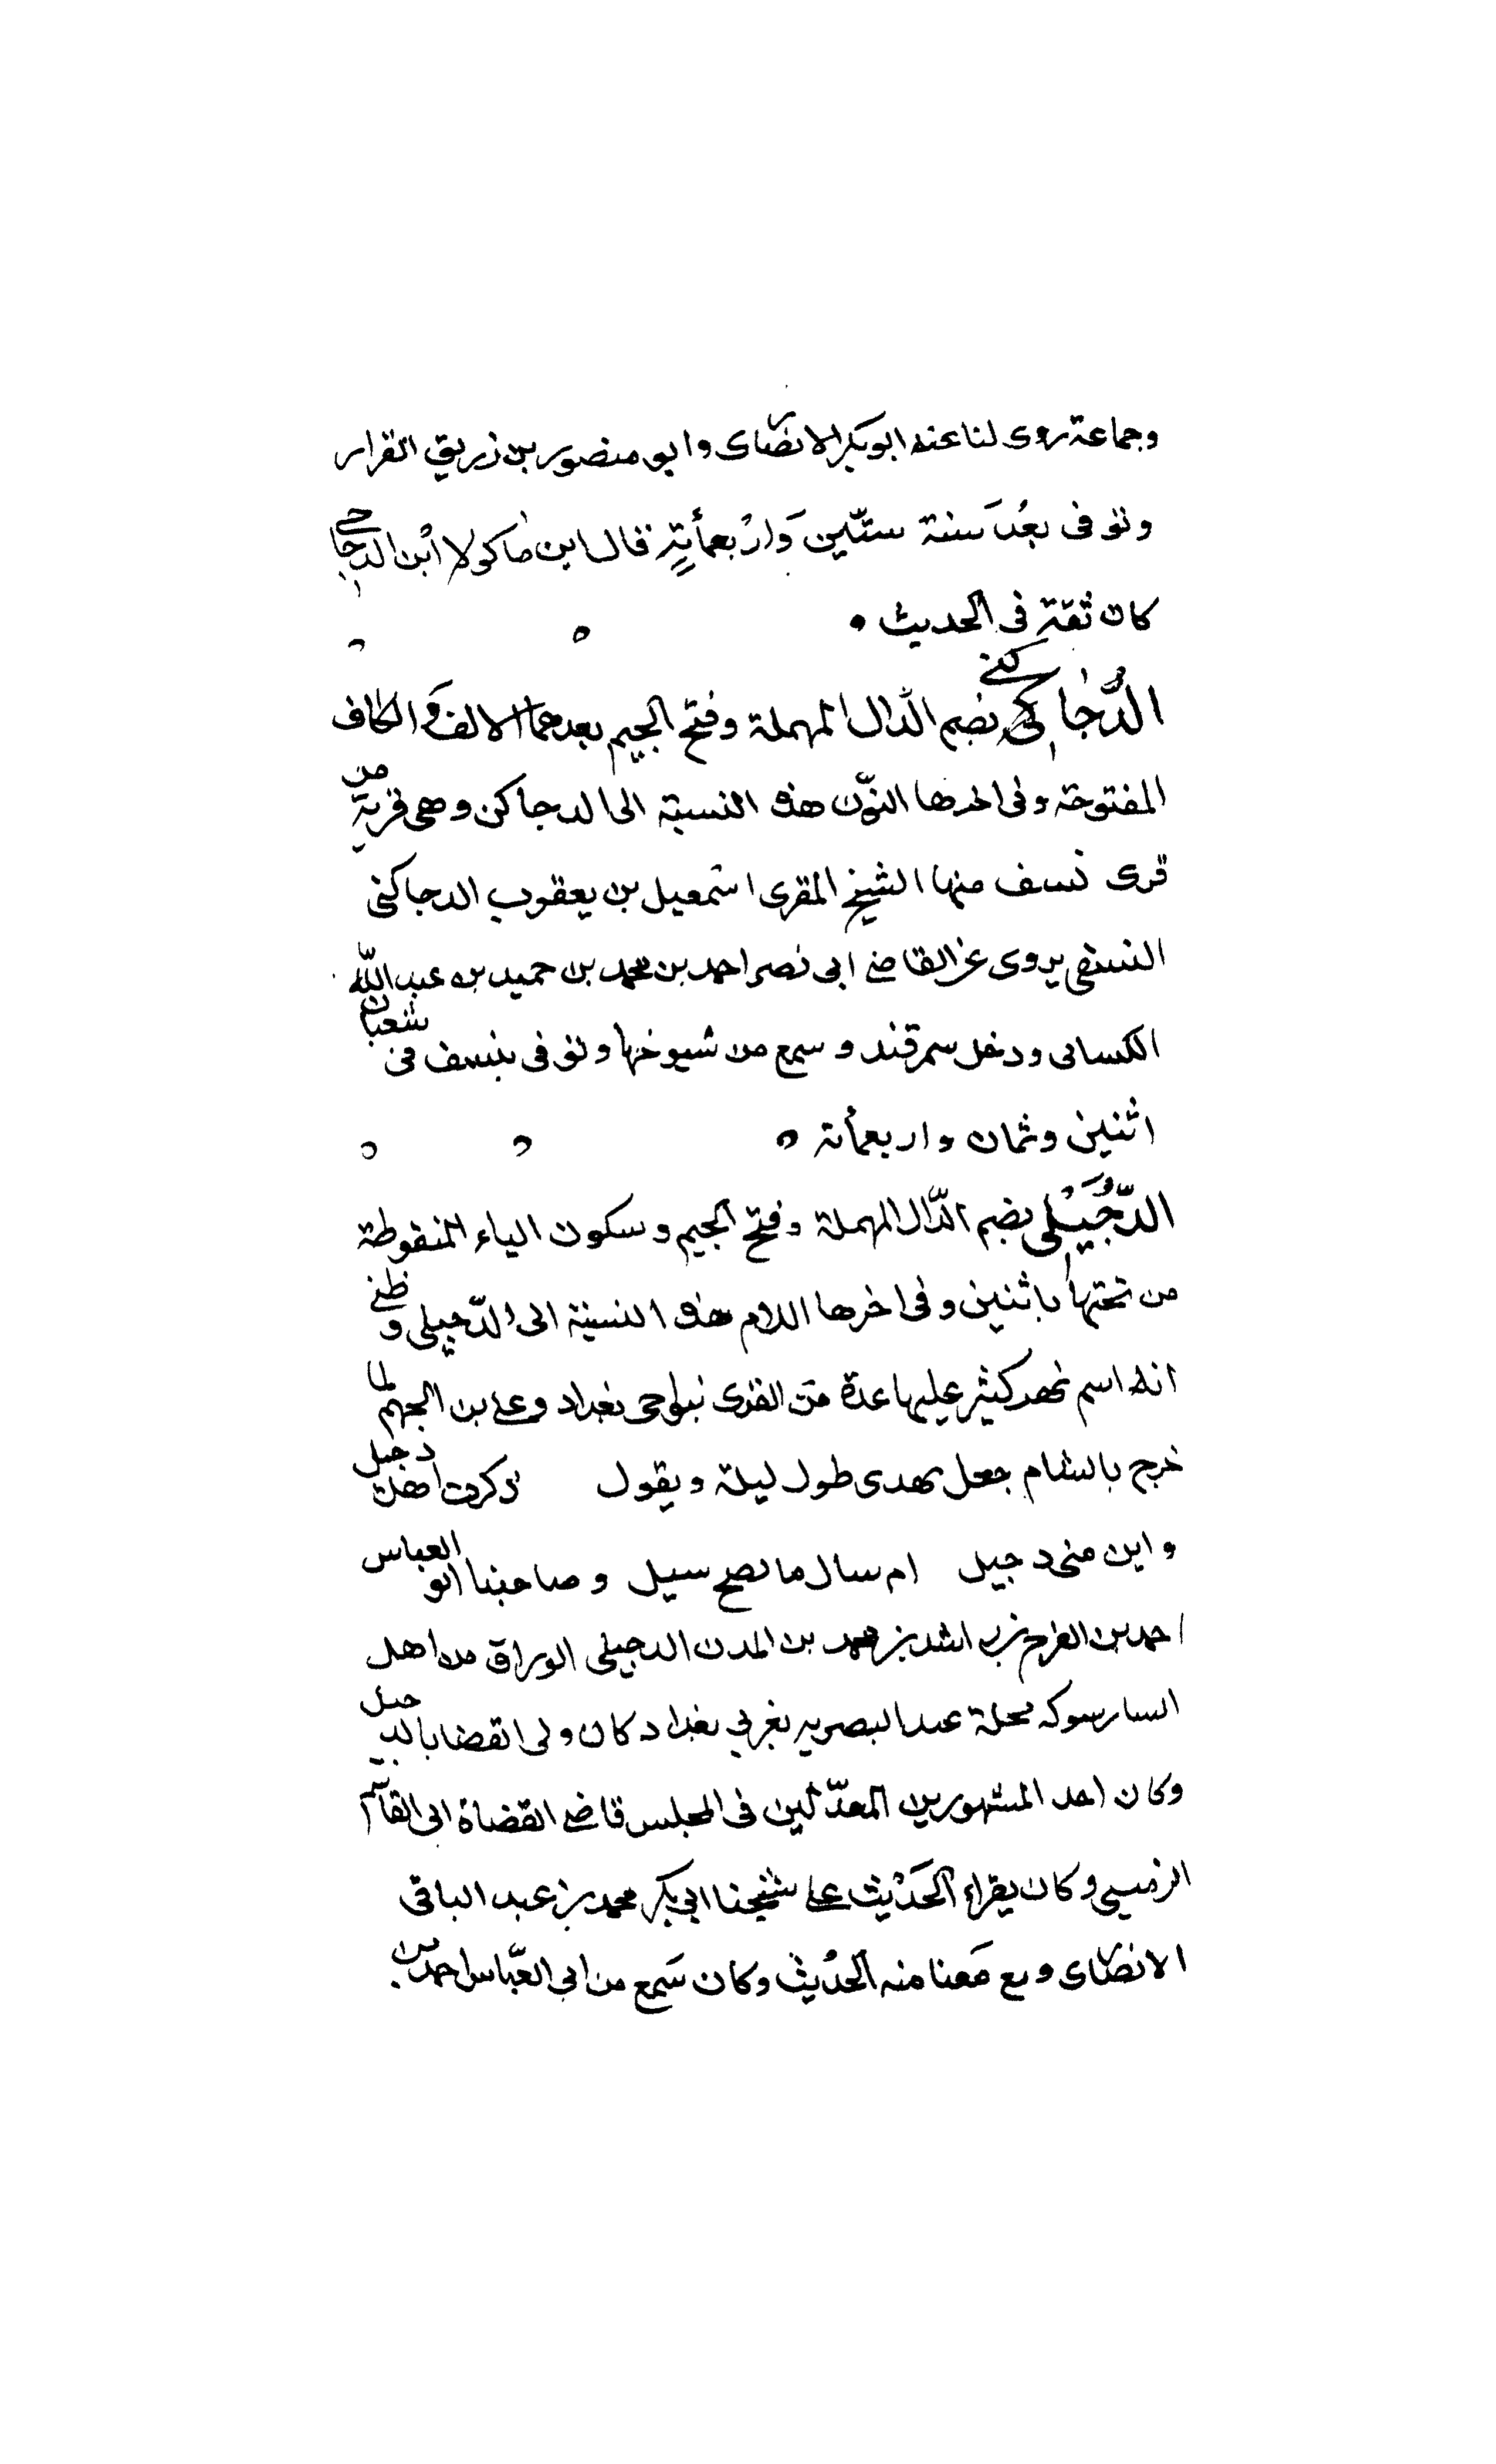 وجماعة روى لنا عنه ابو بكر الانصارى وابو منصور بن زريق القزار
وتوفى بعد سنة ستين واربعمأية قال ابن ماكولا ابن الدجاجى
كان ثقة فى الحديث
الدجاكنى بضم الدال المهملة وفتح الجيم بعدهما الالف والكاف
المفتوحة وفى اخرها النون هذه النسبة الى الدجاكن وهى قرية من
قرى نسف منها الشيخ المقرى اسمعيل بن يعقوب الدجاكنى
النسفى يروى عن القاضى ابى نصر احمد بن محمد بن حميد بن عبد الله
الكسانى ودخل سمرقند وسمع من شيوخها وتوفى بنسف فى شعبان
اثنين وثمان واربعمأة
الدجيلى بضم الدال المهملة وفتح الجيم وسكون الياء المنقوطة
من تحتها باثنين وفى اخرها اللام هذه النسبة الى الدجيلى وظنى
انه اسم نهر كثير عليها عدة من القرى بنواحى بغداد وعلى بن الجهم لما
خرج بالشام جعل يهدى طول ليلة ويقول ذكرت اهل دجيل
واين منى دجيل ام سال سيل وصاحبنا ابو العباس
احمد بن الفرج بن راشد بن محمد بن المدن الدجيلى الوراق من اهل
محلة البصريه بغربى بغداد كان ولى القضا بالدجيل
وكان احد المشهورين المعدلين فى المجلس قاضى القضاة ابى القاسم
الزينبى وكان يقراء الحديث على شيخنا ابى بكر محمد بن عبد الباقى
الانصارى معنا منه الحديث وكان سمع من ابى العباس احمد بن